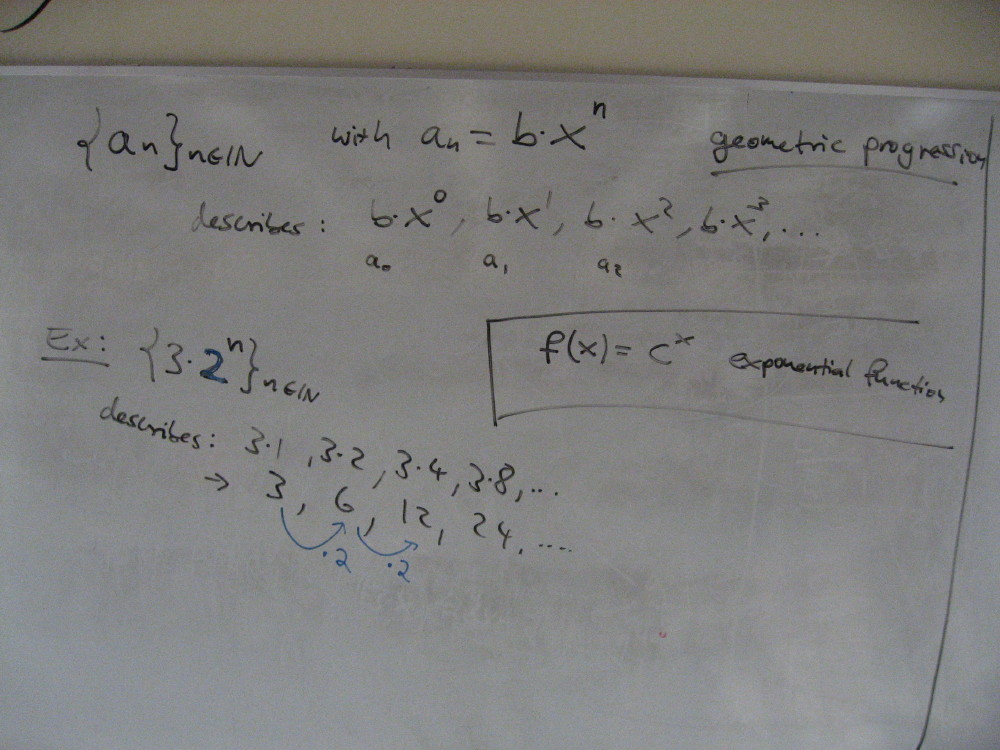 {aₙ}ₙ∈ℕ with aₙ = b·xⁿ geometric progression
describes: b·x⁰, b·x¹, b·x², b·x³, ...
a₀ a₁ a₂
Ex: {3·2ⁿ}ₙ∈ℕ
f(x) = cˣ exponential function
describes: 3·1, 3·2, 3·4, 3·8, ...
→ 3, 6, 12, 24, ....
·2 ·2